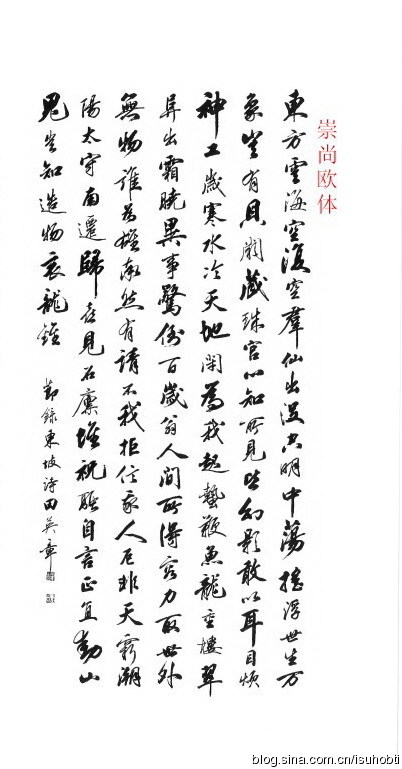 崇尚欧体
東方雲海空復空羣仙出没空明中蕩摇浮世生万
象豈有貝闕藏珠宮心知所見皆幻影敢以耳目煩
神工歲寒水冷天地閉為我起蟄鞭魚龍重樓翠
阜出霜曉異事驚倒百歲翁人間所得容力取世外
無物誰為雄率然有請不我拒信我人厄非天窮潮
陽太守南遷歸喜見石廩堆祝融自言正直動山
鬼豈知造物哀龍鍾
節錄東坡詩田英章
blog.sina.com.cn/isuhobti